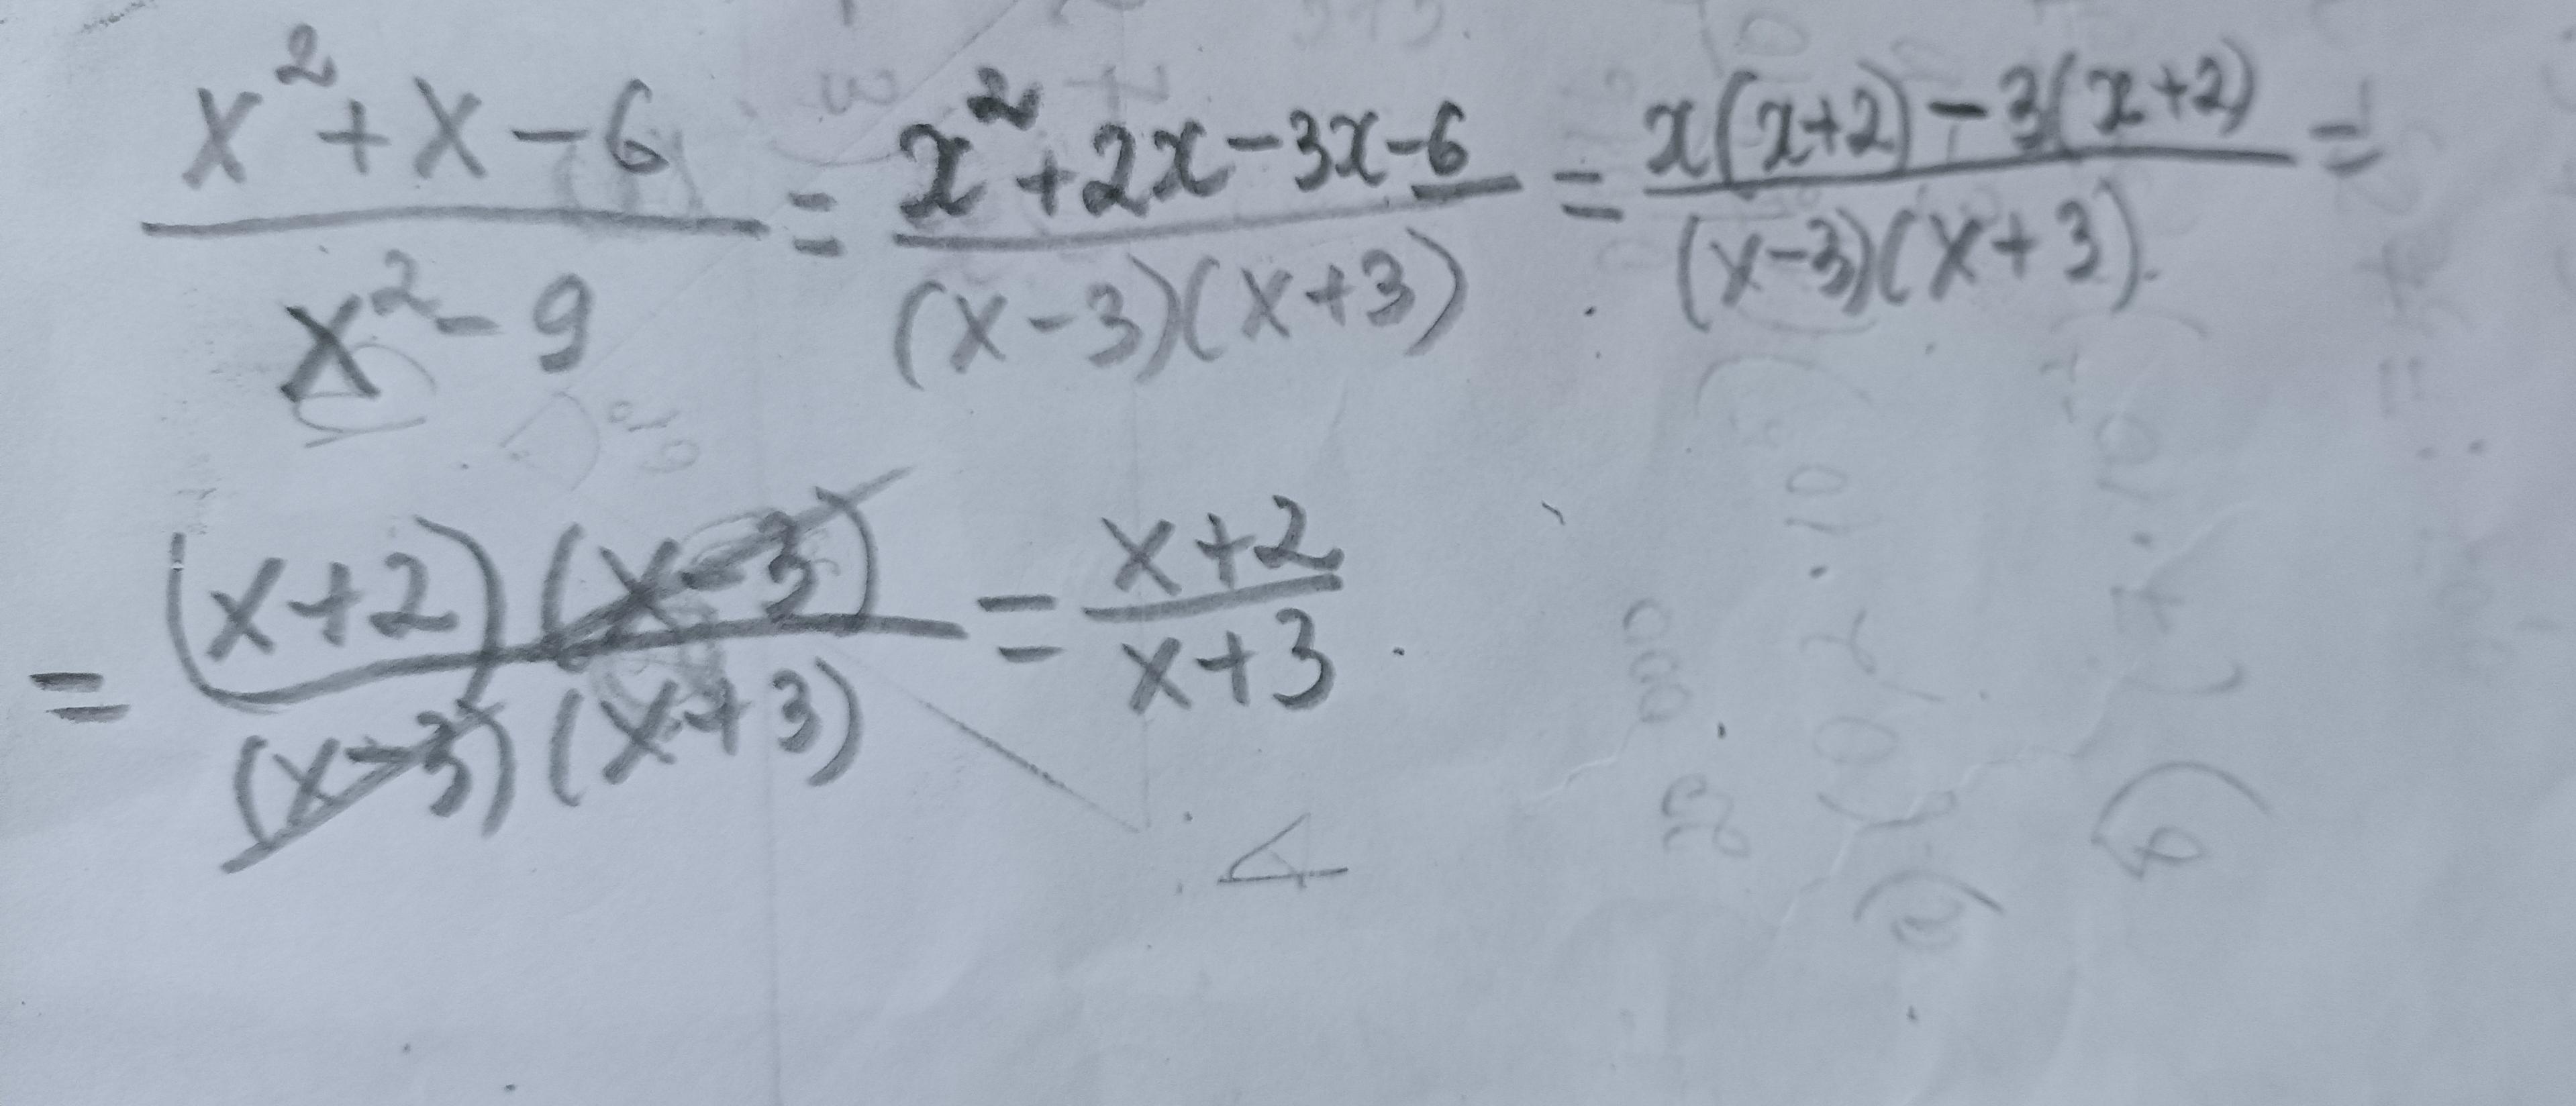 (x² + x - 6)/(x² - 9) = (x² + 2x - 3x - 6)/((x-3)(x+3)) = (x(x+2) - 3(x+2))/((x-3)(x+3)) =
= ((x+2)(x-3))/((x-3)(x+3)) = (x+2)/(x+3).